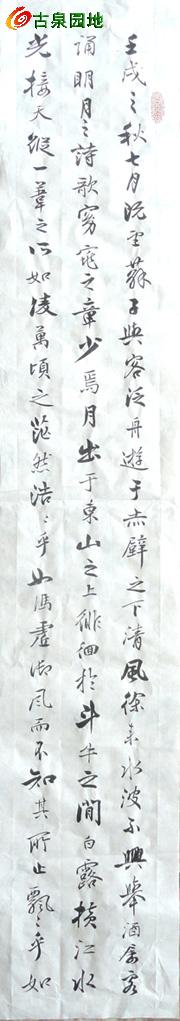 古泉园地
壬戌之秋七月既望蘇子與客泛舟遊于赤壁之下清風徐来水波不興舉酒屬客
誦明月之詩歌窈窕之章少焉月出于東山之上徘徊於斗牛之間白露横江水
光接天縱一葦之所如凌萬頃之茫然浩〻乎如馮虚御风而不知其所止飘〻乎如